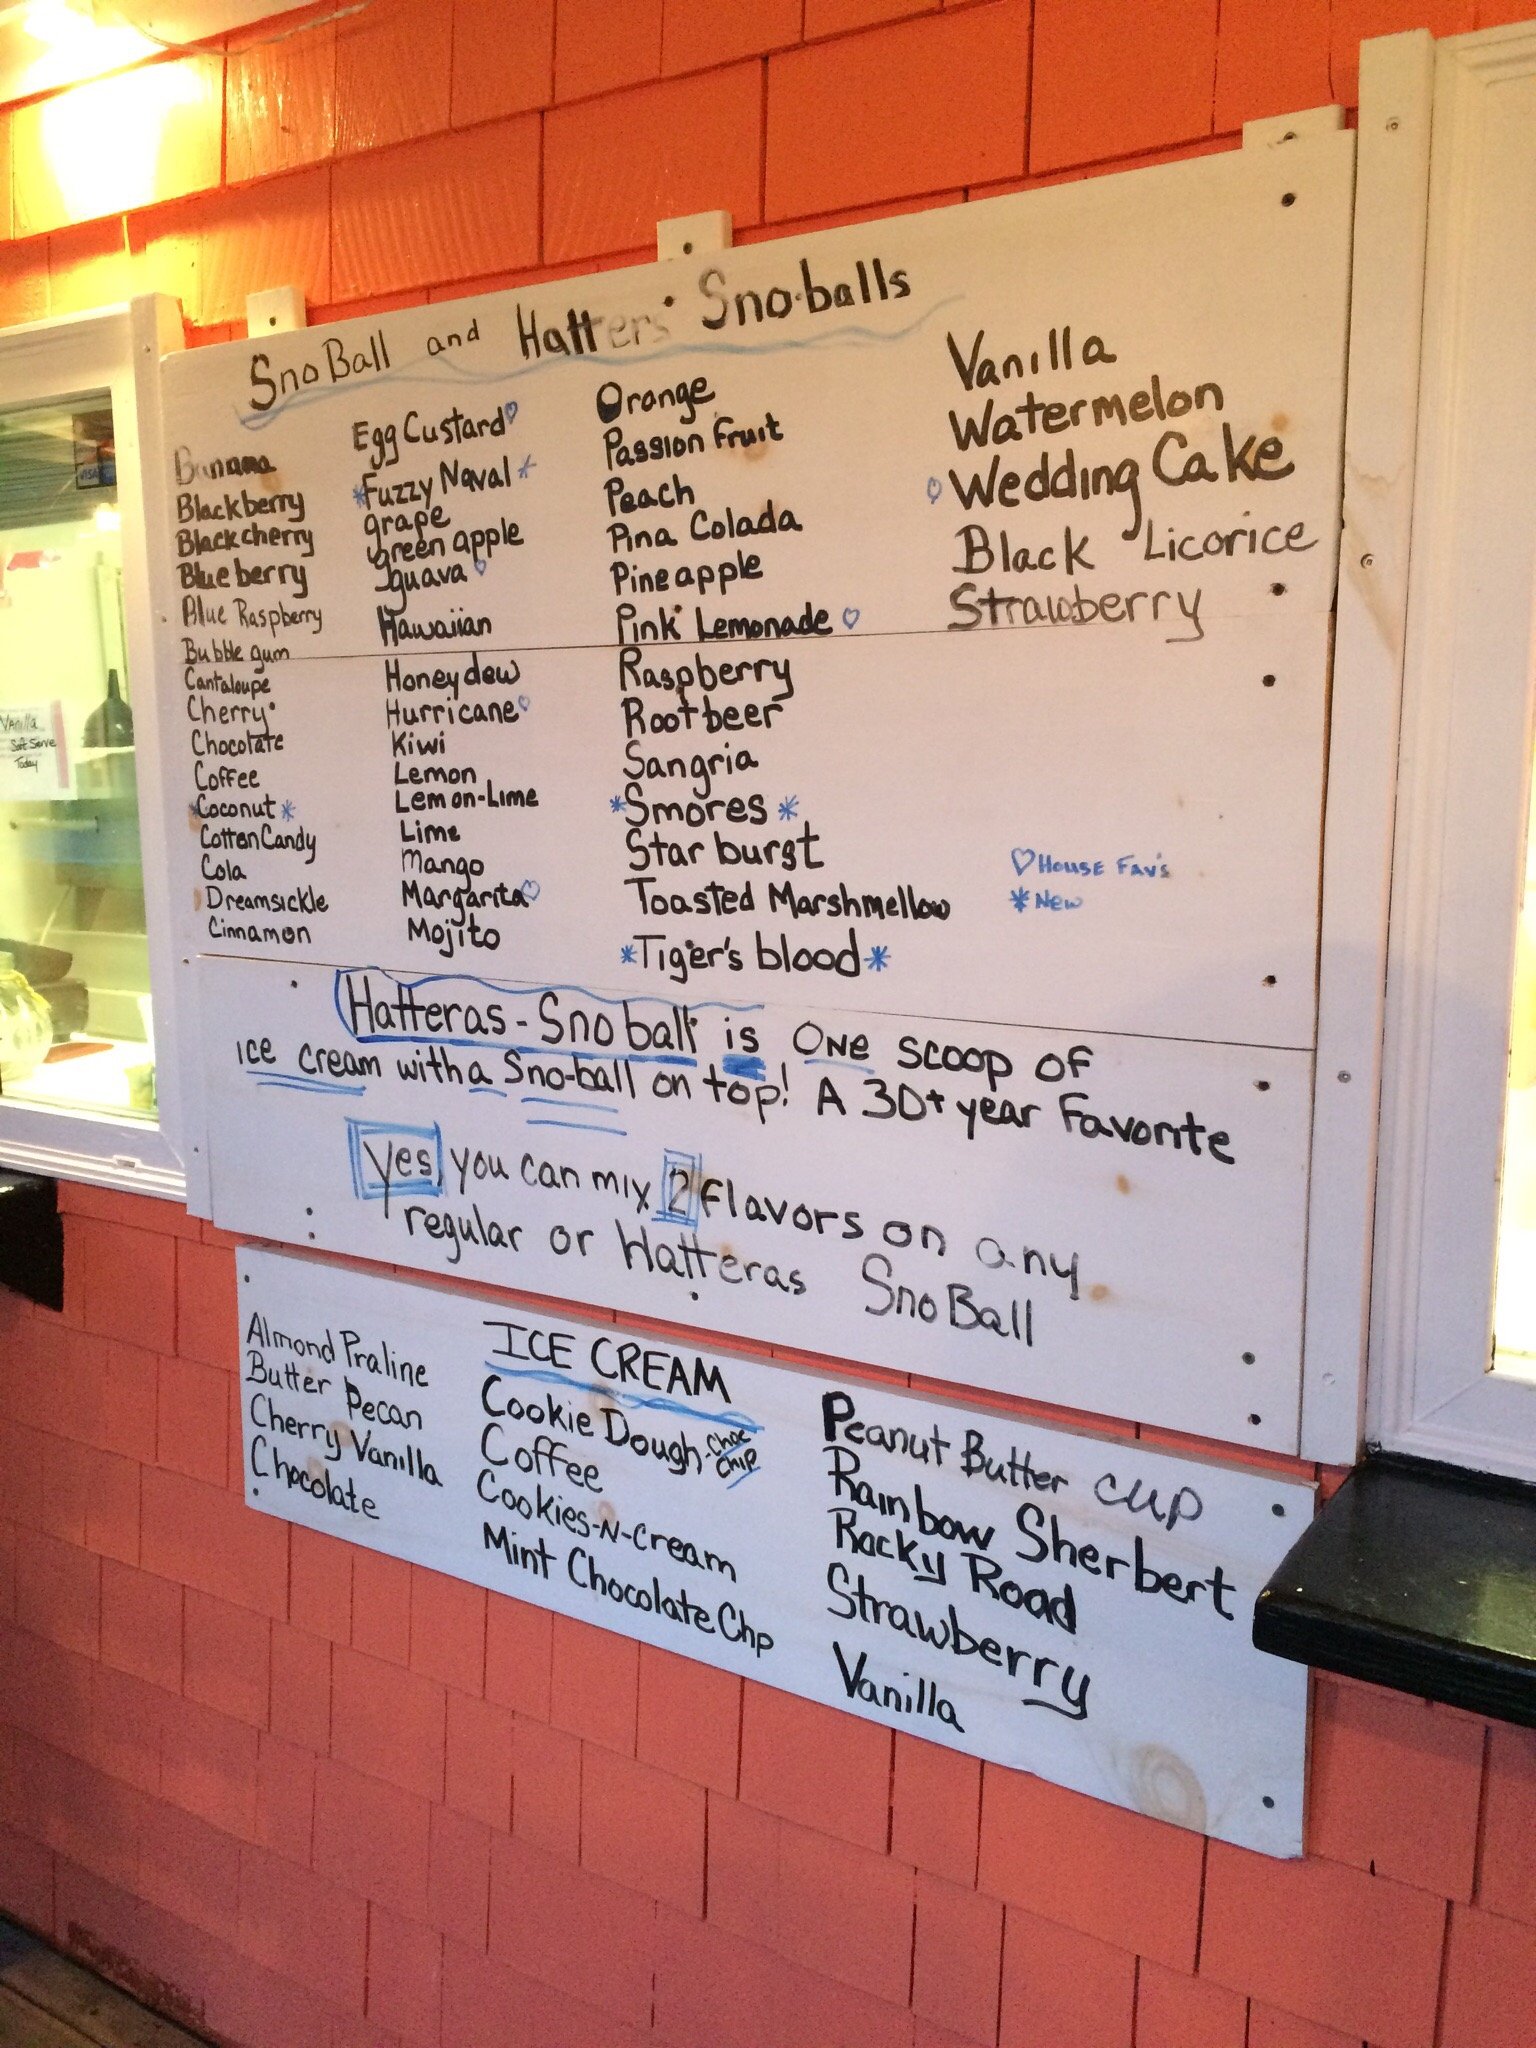 SnoBall and Hatters' Sno-balls
Banana
Blackberry
Blackcherry
Blueberry
Blue Raspberry
Bubble gum
Cantaloupe
Cherry
Chocolate
Coffee
*Coconut*
Cotton Candy
Cola
Dreamsickle
Cinnamon
Egg Custard♡
*Fuzzy Naval*
grape
green apple
guava♡
Hawaiian
Honeydew
Hurricane♡
Kiwi
Lemon
Lemon-Lime
Lime
Mango
Margarita♡
Mojito
Orange
Passion Fruit
Peach
Pina Colada
Pineapple
Pink Lemonade♡
Raspberry
Rootbeer
Sangria
*Smores*
Starburst
Toasted Marshmellow
*Tiger's blood*
Vanilla
Watermelon
♡Wedding Cake
Black Licorice
Strawberry
♡House Fav's
*New
Hatteras-Snoball is one scoop of
ice cream with a Sno-ball on top! A 30+ year Favorite
yes, you can mix 2 flavors on any
regular or Hatteras SnoBall
ICE CREAM
Almond Praline
Butter Pecan
Cherry Vanilla
Chocolate
Cookie Dough-Choc Chip
Coffee
Cookies-N-Cream
Mint Chocolate Chp
Peanut Butter cup
Rainbow Sherbert
Rocky Road
Strawberry
Vanilla
Vanilla
Soft Serve
Today
VISA